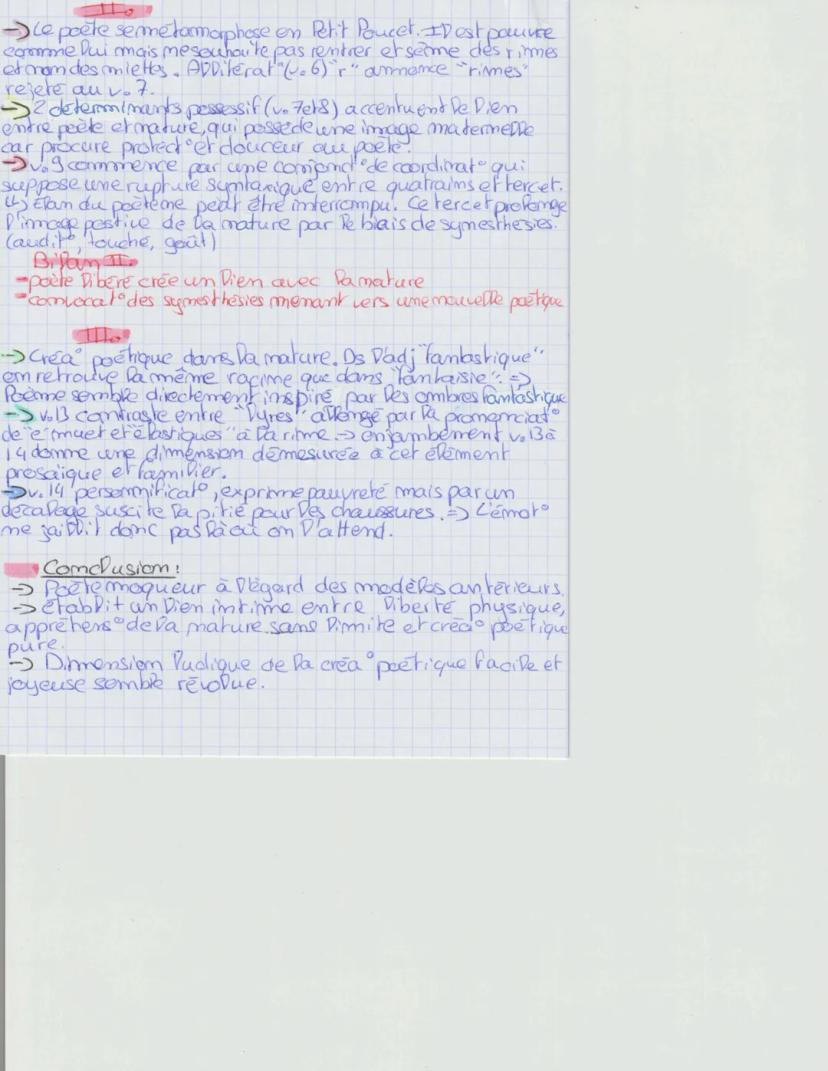 II.
→ Le poète se métamorphose en Petit Poucet. Il est pauvre
comme lui mais ne souhaite pas rentrer et sème des rimes
et non des miettes. Allitérat° (v.6) "r" annonce "rimes"
rejeté au v.7.
→ 2 déterminants possessif (v.7 et 8) accentuent le lien
entre poète et nature, qui possède une image maternelle
car procure protect° et douceur au poète.
→ v.9 commence par une conjonct° de coordinat° qui
suppose une rupture syntaxique entre quatrains et tercet.
↳ Elan du poème peut être interrompu. Ce tercet prolonge
l'image postive de la nature par le biais de synesthésies.
(audit°, touché, goût)
Bilan II.
- poète libéré crée un lien avec la nature
- convocat° des synesthésies menant vers une nouvelle poétique
III.
→ Créa° poétique dans la nature. Ds l'adj "fantastique"
on retrouve la même racine que dans "fantaisie". =>
Poème semble directement inspiré par les ombres fantastique
→ v.13 contraste entre "lyres" allongé par la prononciat°
de "e" muet et "élastiques" à la rime. → enjambement v.13 à
14 donne une dimension démesurée à cet élément
prosaïque et familier.
→ v.14 personnificat°, exprime pauvreté mais par un
décalage suscite la pitié pour les chaussures. => L'émot°
ne jaillit donc pas là où on l'attend.
Conclusion :
→ Poète moqueur à l'égard des modèles antérieurs.
→ établit un lien intime entre liberté physique,
appréhens° de la nature sans limite et créa° poétique
pure.
→ Dimension ludique de la créa° poétique facile et
joyeuse semble révolue.